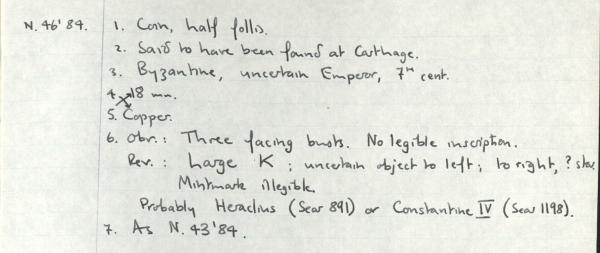 N. 46'84. 1. Coin, half follis.
2. Said to have been found at Carthage.
3. Byzantine, uncertain Emperor, 7th cent.
4. 18 mm.
5. Copper.
6. Obv.: Three facing busts. No legible inscription.
Rev.: Large K; uncertain object to left; to right, ? star
Mintmark illegible.
Probably Heraclius (Sear 891) or Constantine IV (Sear 1198).
7. As N. 43'84.